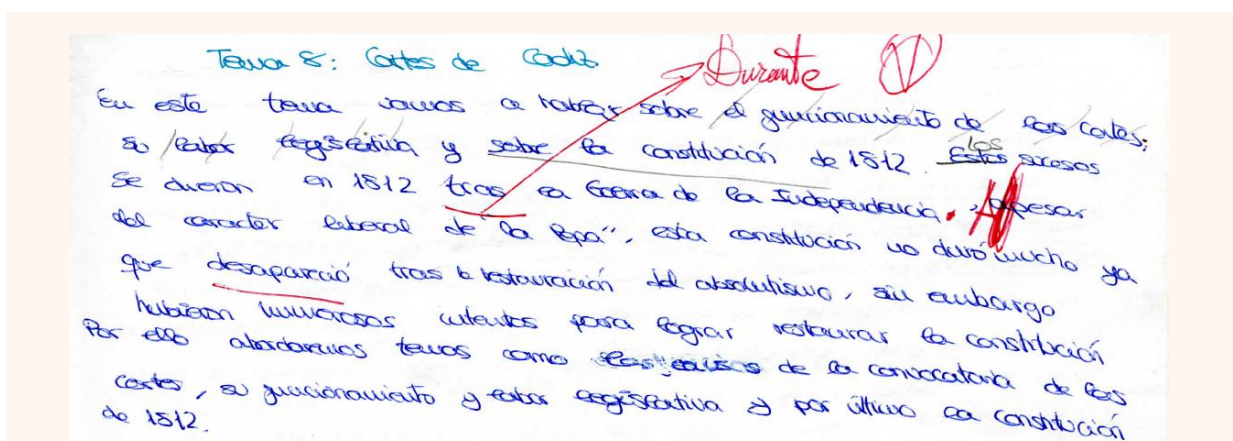 Tema 8: Cortes de Cádiz
Durante V
En este tema vamos a hablar sobre el funcionamiento de las cortes;
su labor legislativa y sobre la constitución de 1812. Estos sucesos
los
se dieron en 1812 tras la Guerra de la Independencia. A pesar
del caracter liberal de "la Pepa", esta constitución no duró mucho ya
que desapareció tras la restauración del absolutismo, sin embargo
hubieron numerosos intentos para lograr restaurar la constitución
Por ello abordaremos temas como las causas de la convocatoria de las
cortes, su funcionamiento y labor legislativa y por último la constitución
de 1812.